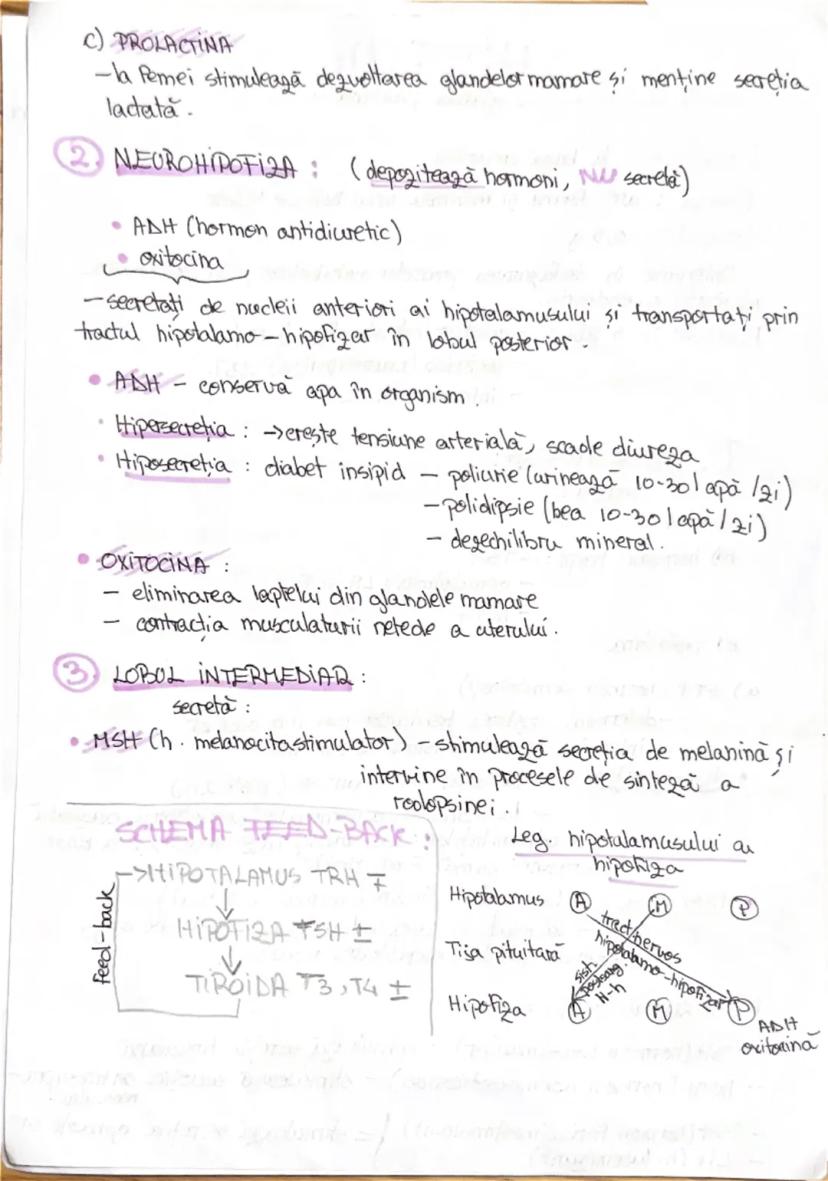 c) PROLACTINA
- la femei stimulează dezvoltarea glandelor mamare și menține secreția
lactată.
2. NEUROHIPOFIZA : (depozitează hormoni, NU secretă)
• ADH (hormon antidiuretic)
• oxitocina
- secretați de nucleii anteriori ai hipotalamusului și transportați prin
tractul hipotalamo-hipofizar în lobul posterior.
• ADH - conservă apa în organism.
• Hipersecreția : → crește tensiune arterială, scade diureza
• Hiposecreția : diabet insipid - poliurie (urinează 10-30 l apă /zi)
- polidipsie (bea 10-30 l apă /zi)
- dezechilibru mineral.
• OXITOCINA :
- eliminarea laptelui din glandele mamare
- contracția musculaturii netede a uterului.
3. LOBUL INTERMEDIAR :
secretă :
• MSH (h. melanocitastimulator) - stimulează secreția de melanină și
intervine în procesele de sinteză a
rodopsinei.
SCHEMA FEED-BACK :
feed-back
→HIPOTALAMUS TRH ∓
↓
HIPOFIZA TSH ±
↓
TIROIDA T3, T4 ±
Leg. hipotalamusului cu
hipofiza
Hipotalamus A M P
tract nervos
hipotalamo-hipofizar
Tija pituitară
sist.
H-h
Hipofiza A M P
ADH
oxitocină